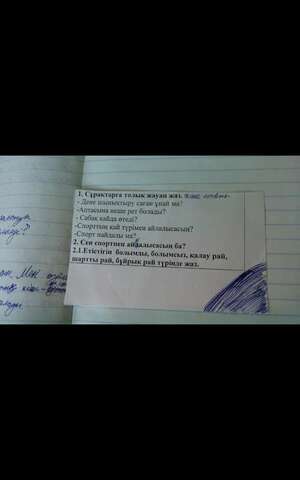 1. Сұрақтарға толық жауап жаз.
- Дене шынықтыру саған ұнай ма?
-Аптасына неше рет болады?
- Сабақ қайда өтеді?
-Спорттың қай түрімен айналысасың?
-Спорт пайдалы ма?
2. Сен спортпен айналысасың ба?
2.1.Етістігін болымды, болымсыз, қалау рай,
шартты рай, бұйрық рай түрінде жаз.